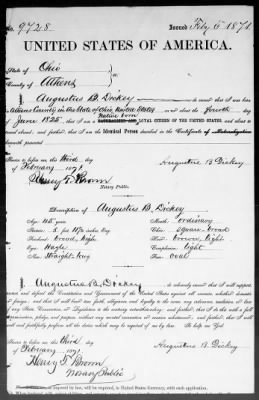 No. 9728 Issued Feby 6 1871
UNITED STATES OF AMERICA.
State of Ohio
County of Athens
I Augustus B. Dickey do swear that I was born
Athens County in the State of Ohio, United States on the fourth day of
June 1825, that I am a native born and LOYAL CITIZEN OF THE UNITED STATES and about to
travel abroad; and further, that I am the Identical Person described in the Certificate of Naturalization
herewith presented
Sworn to before me this third day
of February 1871
Augustus B Dickey
Henry T. Brown
Notary Public.
Description of Augustus B. Dickey
Age: 45 year
Mouth: ordinary
Stature: 5 feet 10½ inches Eng.
Chin: square, broad
Forehead: broad, high
Hair: brown, light
Eyes: Hazle
Complexion: light
Nose: Straight, long
Face: oval
I, Augustus B. Dickey do solemnly swear that I will support,
protect and defend the Constitution and Government of the United States against all enemies, whether domestic
or foreign; and that I will bear true faith, allegiance and loyalty to the same, any ordinance, resolution or law
of any State, Convention or Legislature to the contrary notwithstanding; and further, that I do this with a full
determination, pledge, and purpose, without any mental reservation or evasion whatsoever; and further, that I will
well and faithfully perform all the duties which may be required of me by law. So help me God
Sworn to before me this third
day of February 1871
Augustus B. Dickey
Henry T. Brown
Notary Public
required by law, will be required, in United States Currency, with each application.